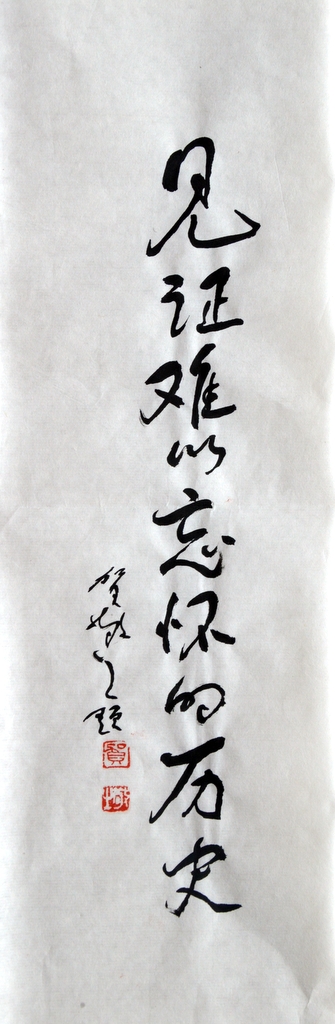 见证难以忘怀的历史
贺敬之题